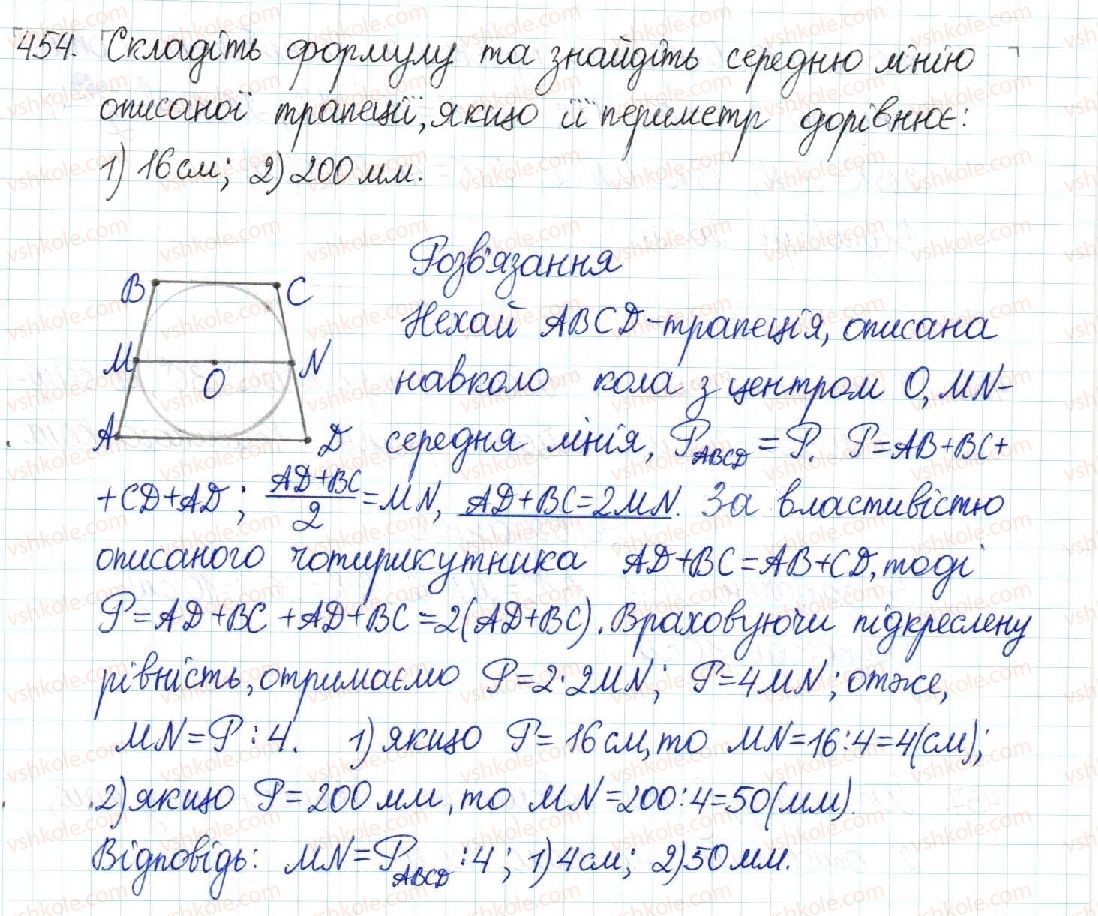 454. Складіть формулу та знайдіть середню лінію
описаної трапеції, якщо її периметр дорівнює:
1) 16 см; 2) 200 мм.
Розв'язання
B C
Нехай ABCD-трапеція, описана
M O N
навколо кола з центром O, MN-
A D
середня лінія, P_ABCD = P. P=AB+BC+
+CD+AD; (AD+BC)/2 = MN, AD+BC=2MN. За властивістю
описаного чотирикутника AD+BC=AB+CD, тоді
P=AD+BC+AD+BC=2(AD+BC). Враховуючи підкреслену
рівність, отримаємо P=2·2MN; P=4MN; отже,
MN=P:4. 1) якщо P=16 см, то MN=16:4=4(см);
2) якщо P=200 мм, то MN=200:4=50(мм).
Відповідь: MN=P_ABCD:4; 1) 4 см; 2) 50 мм.
vshkole.com